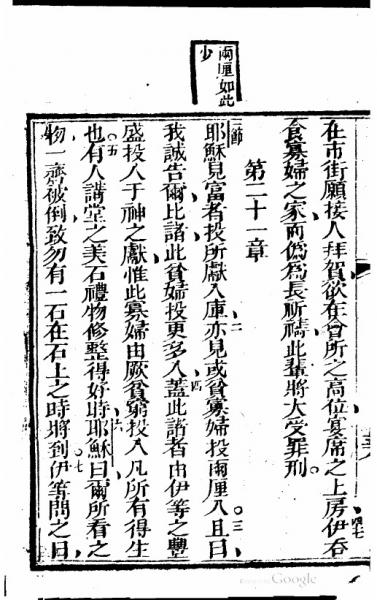 兩厘如此
少
在市街願接人拜賀欲在會所之高位宴席之上房伊吞
四七
食寡婦之家而僞爲長祈禱此輩將大受罪刑
第二十一章
一節
耶穌見富者投所獻入庫亦見或貧寡婦投兩厘入且曰
二
三
我誠告爾比諸此貧婦投更多入蓋此諸者由伊等之豐
四
盛投入于神之獻惟此寡婦由厥貧窮投入凡所有得生
五
也有人講堂之美石禮物修整得好時耶穌曰爾所看之
六
物一齊被倒致勿有一石在石上之時將到伊等問之曰
七
Google